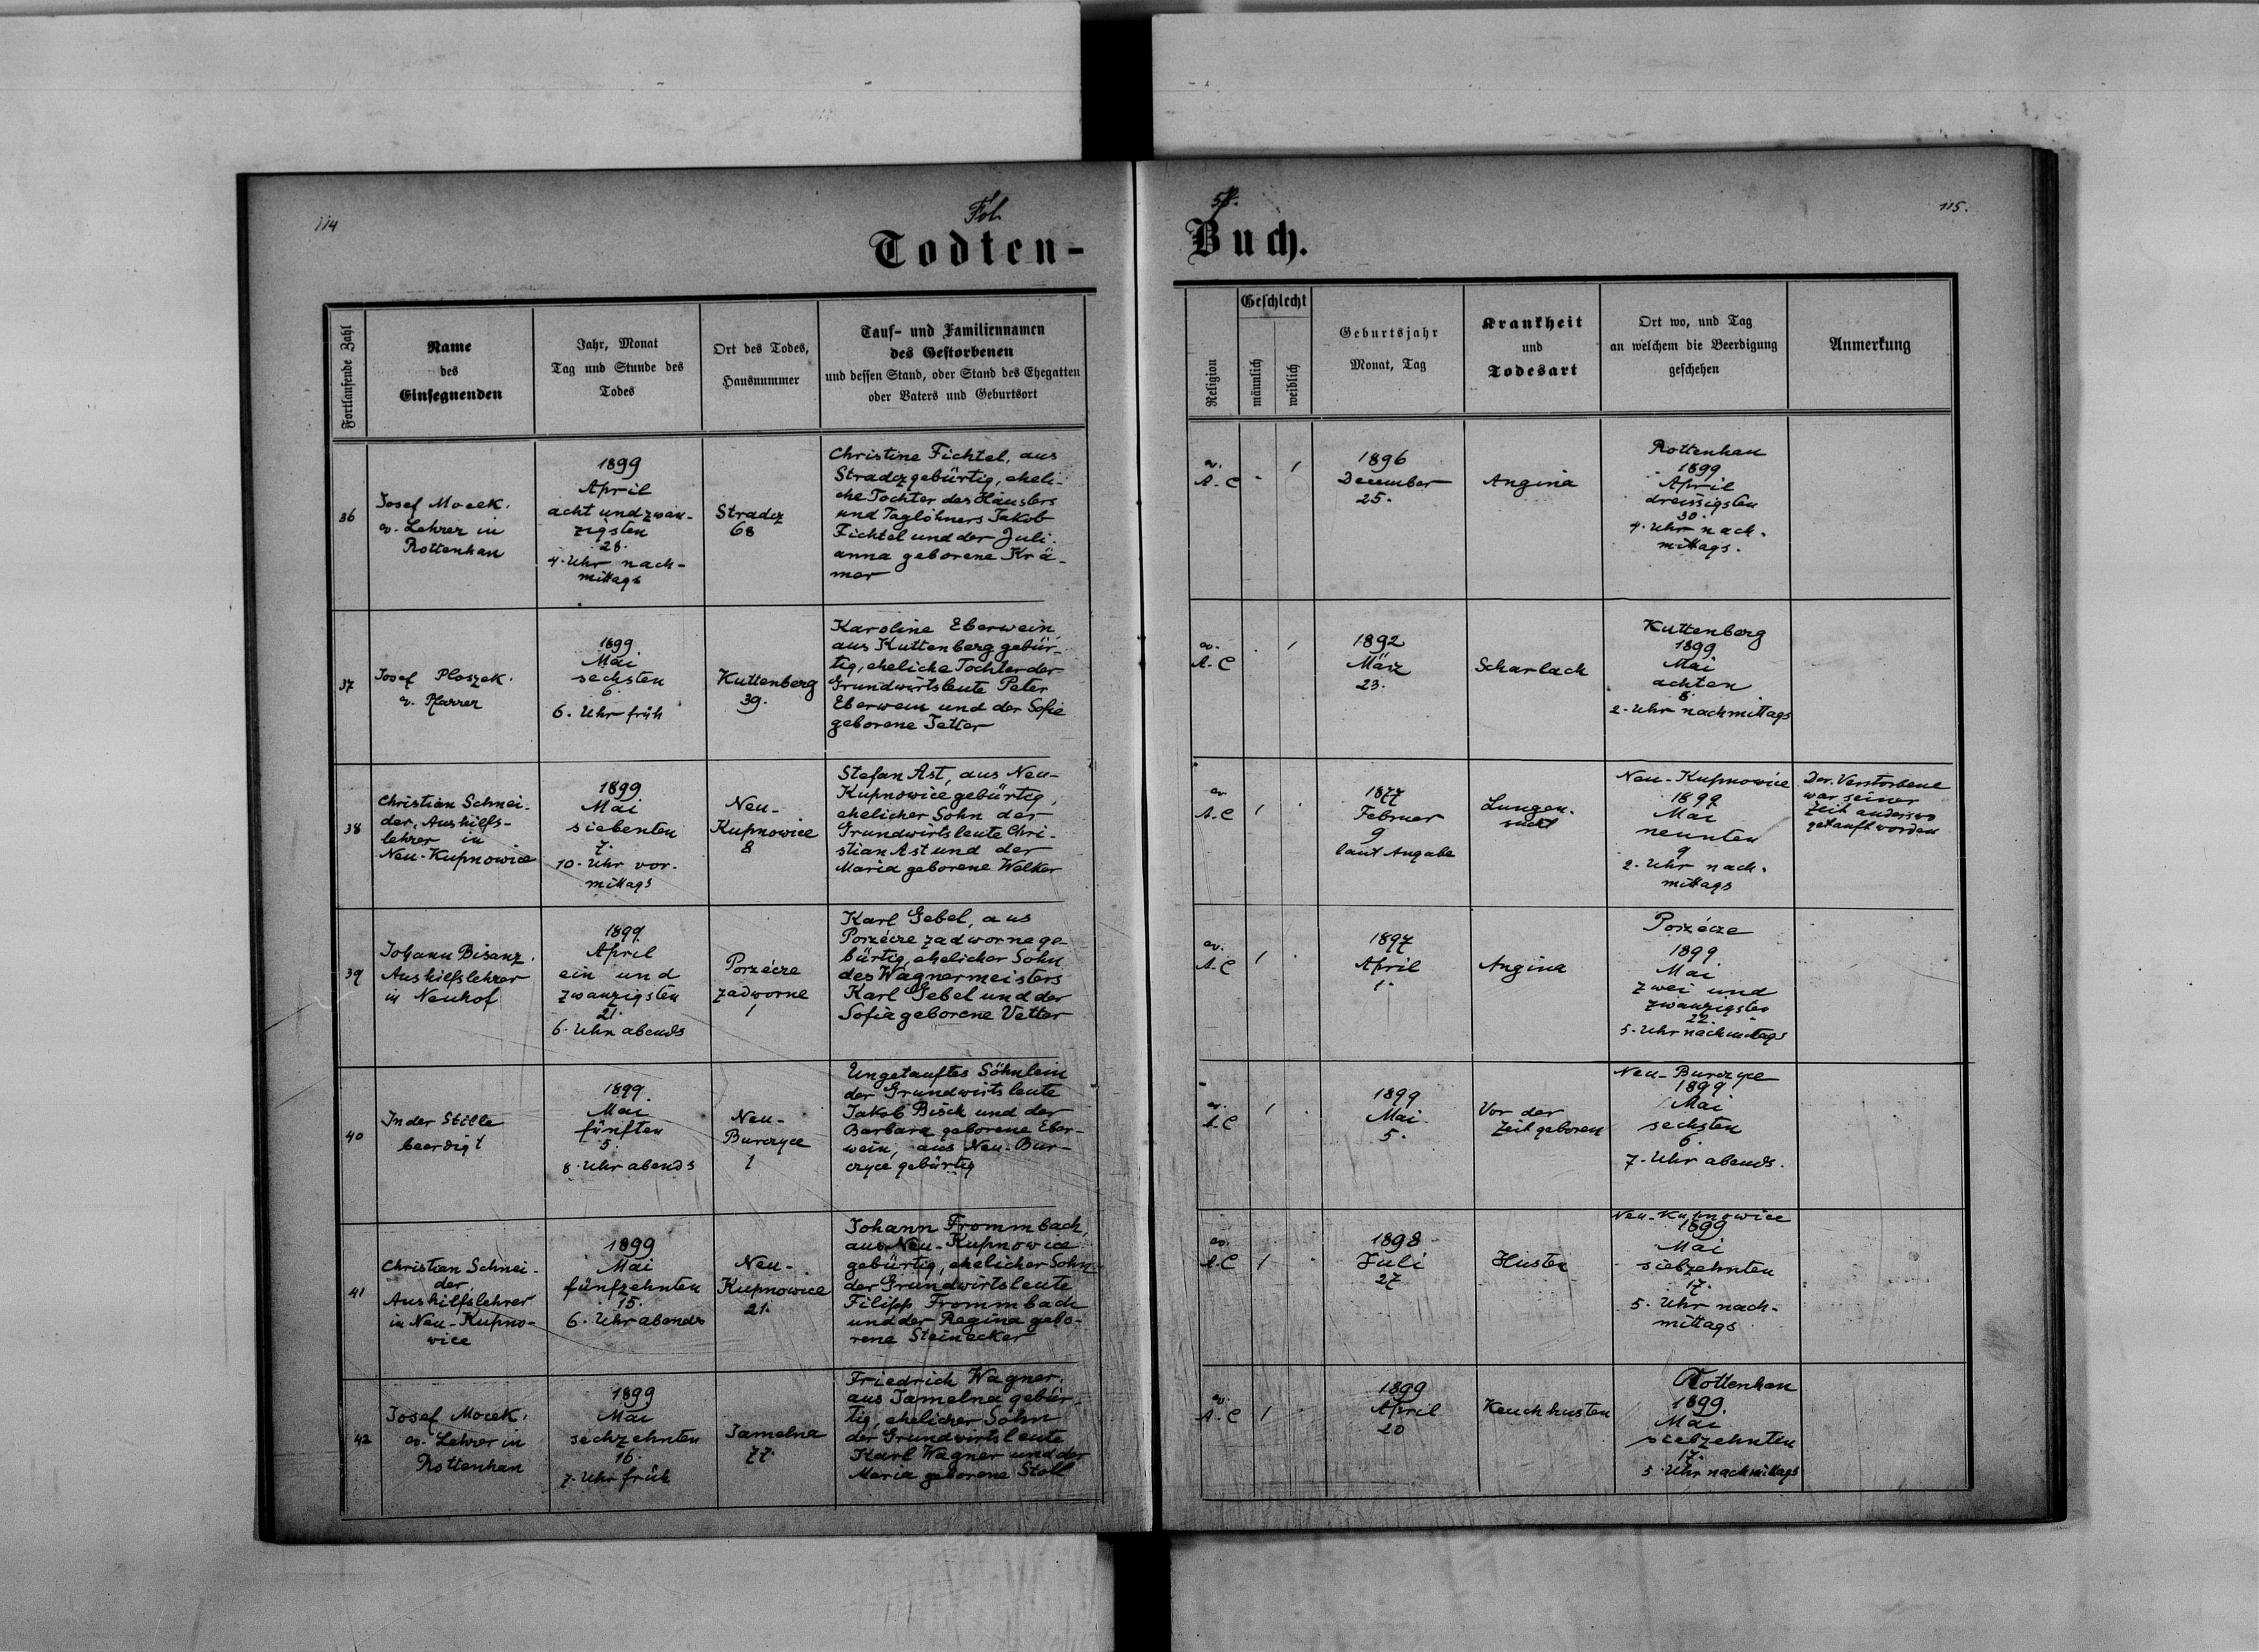 114
Fol.
58.
115.
Todten-
Buch.
Fortlaufende Zahl
Name
des
Einsegnenden
Jahr, Monat
Tag und Stunde des
Todes
Ort des Todes,
Hausnummer
Tauf- und Familiennamen
des Gestorbenen
und dessen Stand, oder Stand des Ehegatten
oder Vaters und Geburtsort
Religion
Geschlecht
männlich
weiblich
Geburtsjahr
Monat, Tag
Krankheit
und
Todesart
Ort wo, und Tag
an welchem die Beerdigung
geschehen
Anmerkung
36
Josef Mocek.
ev. Lehrer in
Rottenhan
1899
April
acht und zwan-
zigsten
28.
4. Uhr nach-
mittags
Stradcz
68
Christine Fichtel, aus
Stradcz gebürtig, eheli-
che Tochter des Häuslers
und Taglöhners Jakob
Fichtel und der Juli-
anna geborene Krä-
mer
ev.
A. C
1
1896
December
25.
Angina
Rottenhan
1899
April
dreissigsten
30.
4. Uhr nach-
mittags.
37
Josef Ploszek.
ev. Pfarrer
1899.
Mai
sechsten
6.
6. Uhr früh
Kuttenberg
39.
Karoline Eberwein,
aus Kuttenberg gebür-
tig, eheliche Tochter der
Grundwirtsleute Peter
Eberwein und der Sofie
geborene Tetter
ev.
A. C
1
1892
März
23.
Scharlach
Kuttenberg
1899
Mai
achten
8.
2. Uhr nachmittags
38
Christian Schnei-
der, Aushilfs-
lehrer in
Neu-Kupnowice
1899
Mai
siebenten
7.
10. Uhr vor-
mittags
Neu-
Kupnowice
8
Stefan Ast, aus Neu-
Kupnowice gebürtig,
ehelicher Sohn der
Grundwirtsleute Chri-
stian Ast und der
Maria geborene Welker
ev.
A. C
1
1877
Februer
9
laut Angabe
Lungen-
sucht
Neu-Kupnowice
1899
Mai
neunten
9
2. Uhr nach-
mittags
Der Verstorbene
war seiner
Zeit anderswo
getauft worden
39
Johann Bisanz.
Aushilfslehrer
in Neuhof
1899.
April
ein und
zwanzigsten
21.
6. Uhr abends
Porzécze
zadworne
1
Karl Gebel, aus
Porzécze zadworne ge-
bürtig, ehelicher Sohn
des Wagnermeisters
Karl Gebel und der
Sofia geborene Vetter
ev.
A. C
1
1897
April
1.
Angina
Porzécze
1899
Mai
zwei und
zwanzigsten
22.
5. Uhr nachmittags
40
In der Stille
beerdigt
1899.
Mai
fünften
5.
8. Uhr abends
Neu-
Burczyce
1
Ungetauftes Söhnlein
der Grundwirtsleute
Jakob Bisch und der
Barbara geborene Eber-
wein, aus Neu-Bur-
czyce gebürtig
ev.
A. C
1
1899
Mai
5.
Vor der
Zeit geboren
Neu-Burczyce
1899
Mai
sechsten
6.
7. Uhr abends.
41
Christian Schnei-
der,
Aushilfslehrer
in Neu-Kupno-
wice
1899
Mai
fünfzehnten
15.
6. Uhr abends
Neu-
Kupnowice
21.
Johann Frommbach,
aus Neu-Kupnowice
gebürtig, ehelicher Sohn
der Grundwirtsleute
Filipp Frommbach
und der Regina gebo-
rene Steinacker
ev.
A. C
1
1898
Juli
27
Husten
Neu-Kupnowice
1899
Mai
siebzehnten
17.
5. Uhr nach-
mittags
42
Josef Mocek.
ev. Lehrer in
Rottenhan
1899
Mai
sechzehnten
16.
7. Uhr früh
Jamelna
77.
Friedrich Wagner,
aus Jamelna gebür-
tig, ehelicher Sohn
der Grundwirtsleute
Karl Wagner und der
Maria geborene Stoll
ev.
A. C
1
1899
April
20
Keuchhusten
Rottenhan
1899.
Mai
siebzehnten
17.
5. Uhr nachmittags